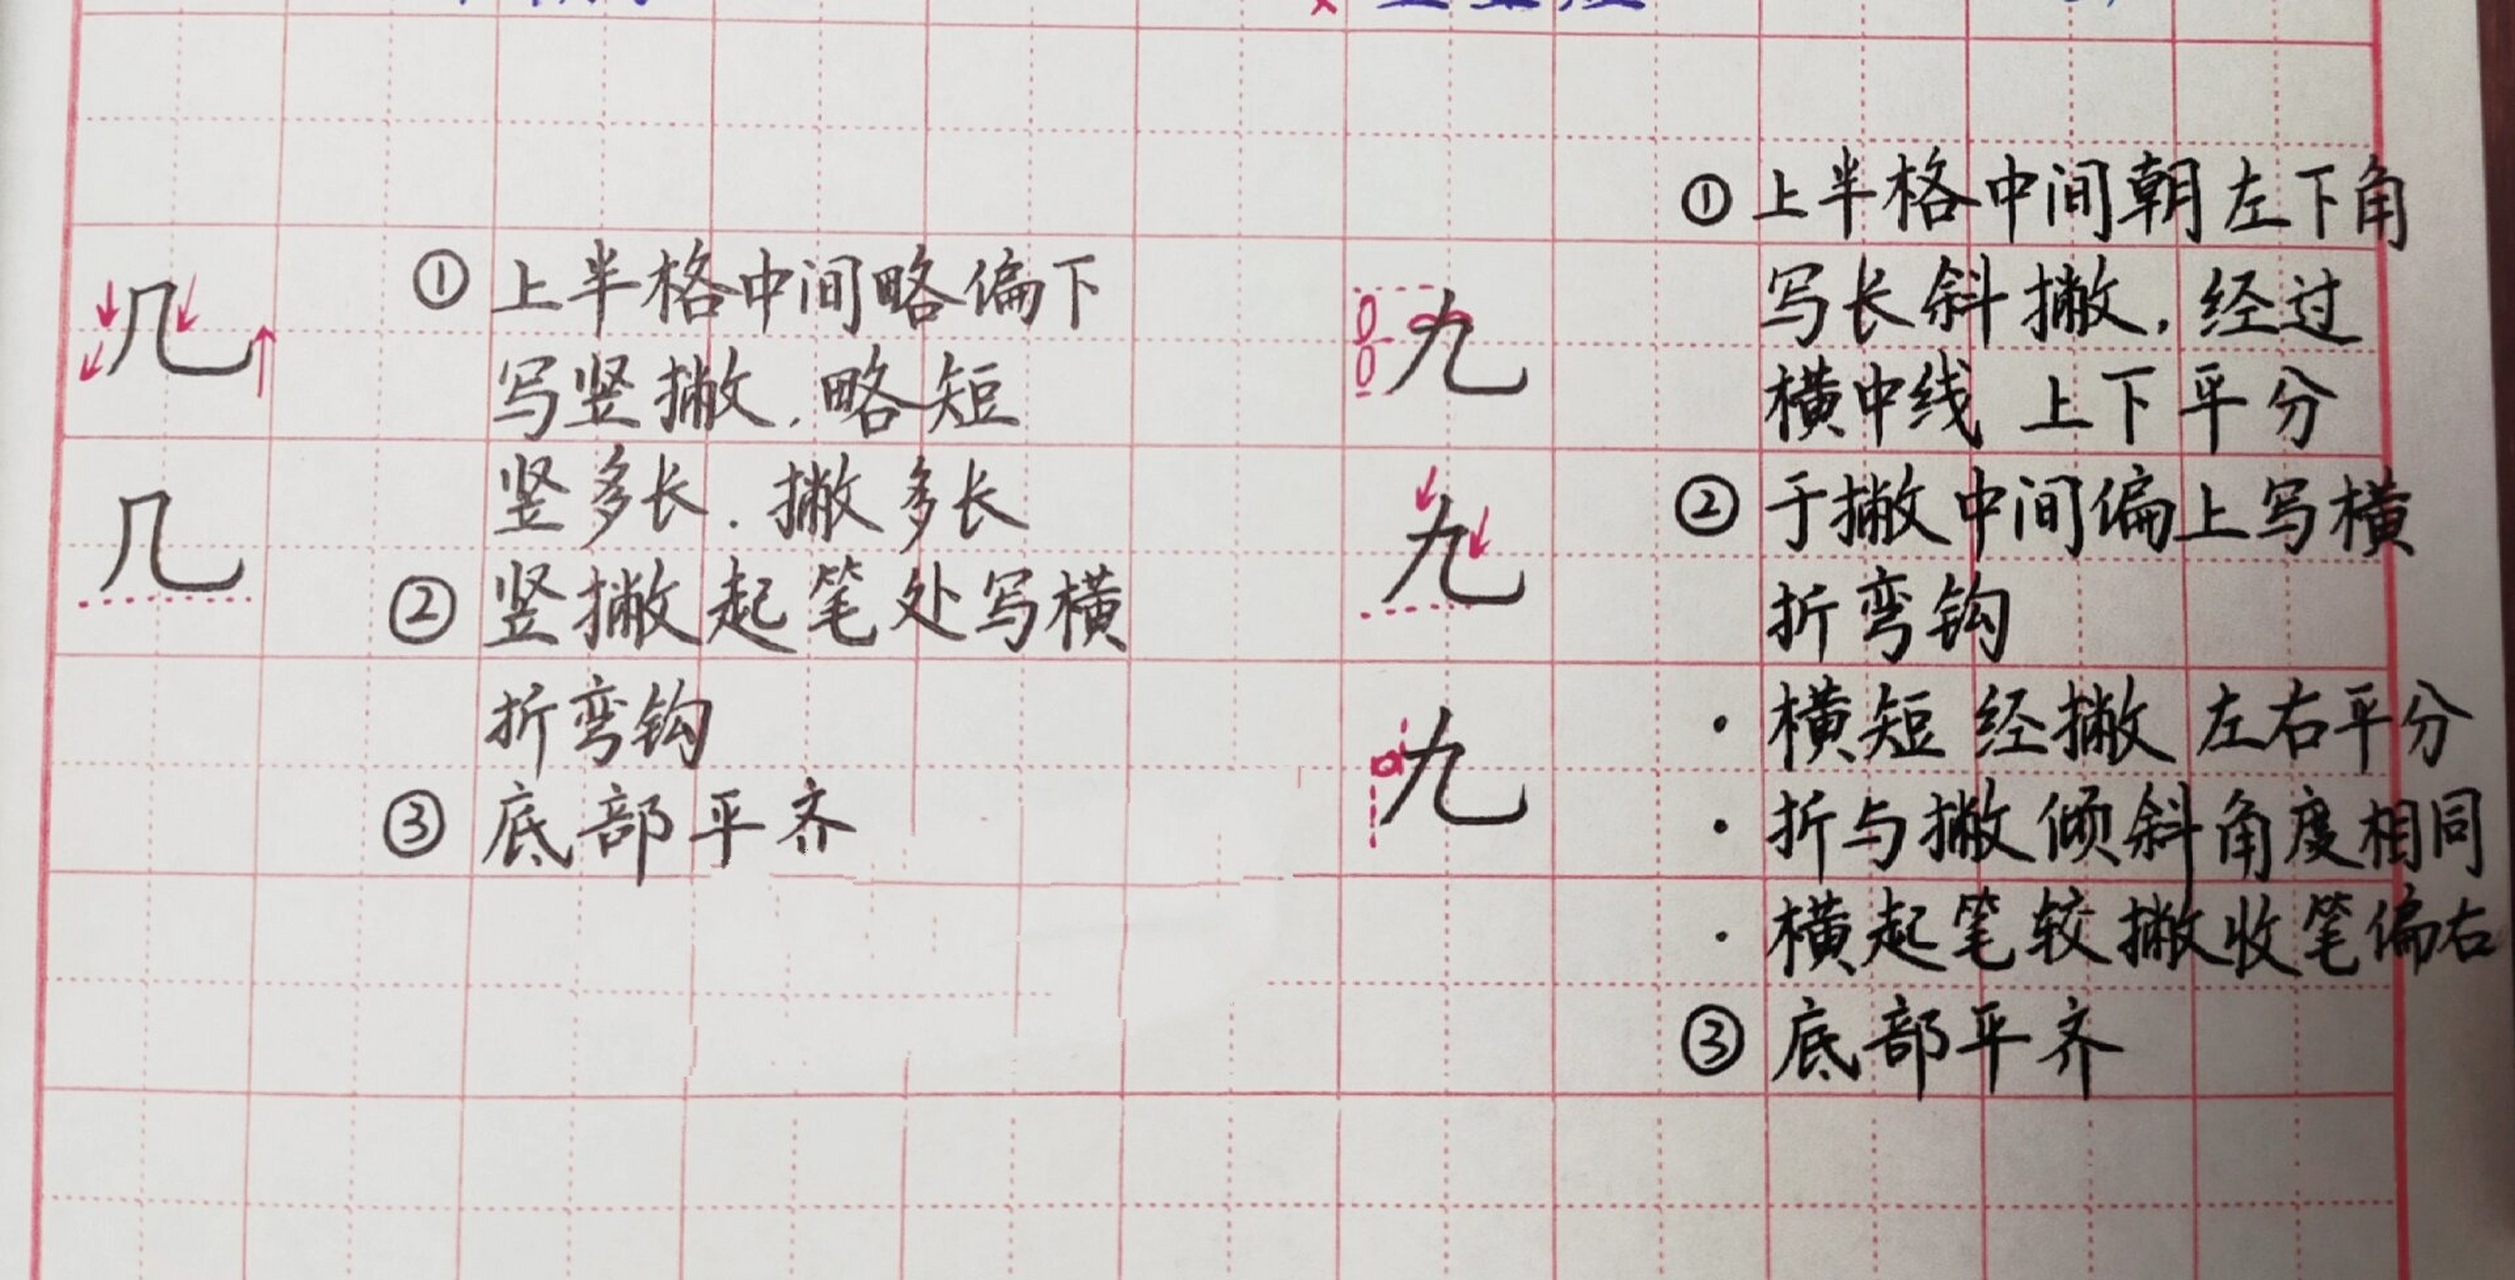 几
几
① 上半格中间略偏下
写竖撇,略短
竖多长.撇多长
② 竖撇起笔处写横
折弯钩
③ 底部平齐
九
九
九
① 上半格中间朝左下角
写长斜撇,经过
横中线 上下平分
② 于撇中间偏上写横
折弯钩
· 横短 经撇 左右平分
· 折与撇倾斜角度相同
· 横起笔较撇收笔偏右
③ 底部平齐